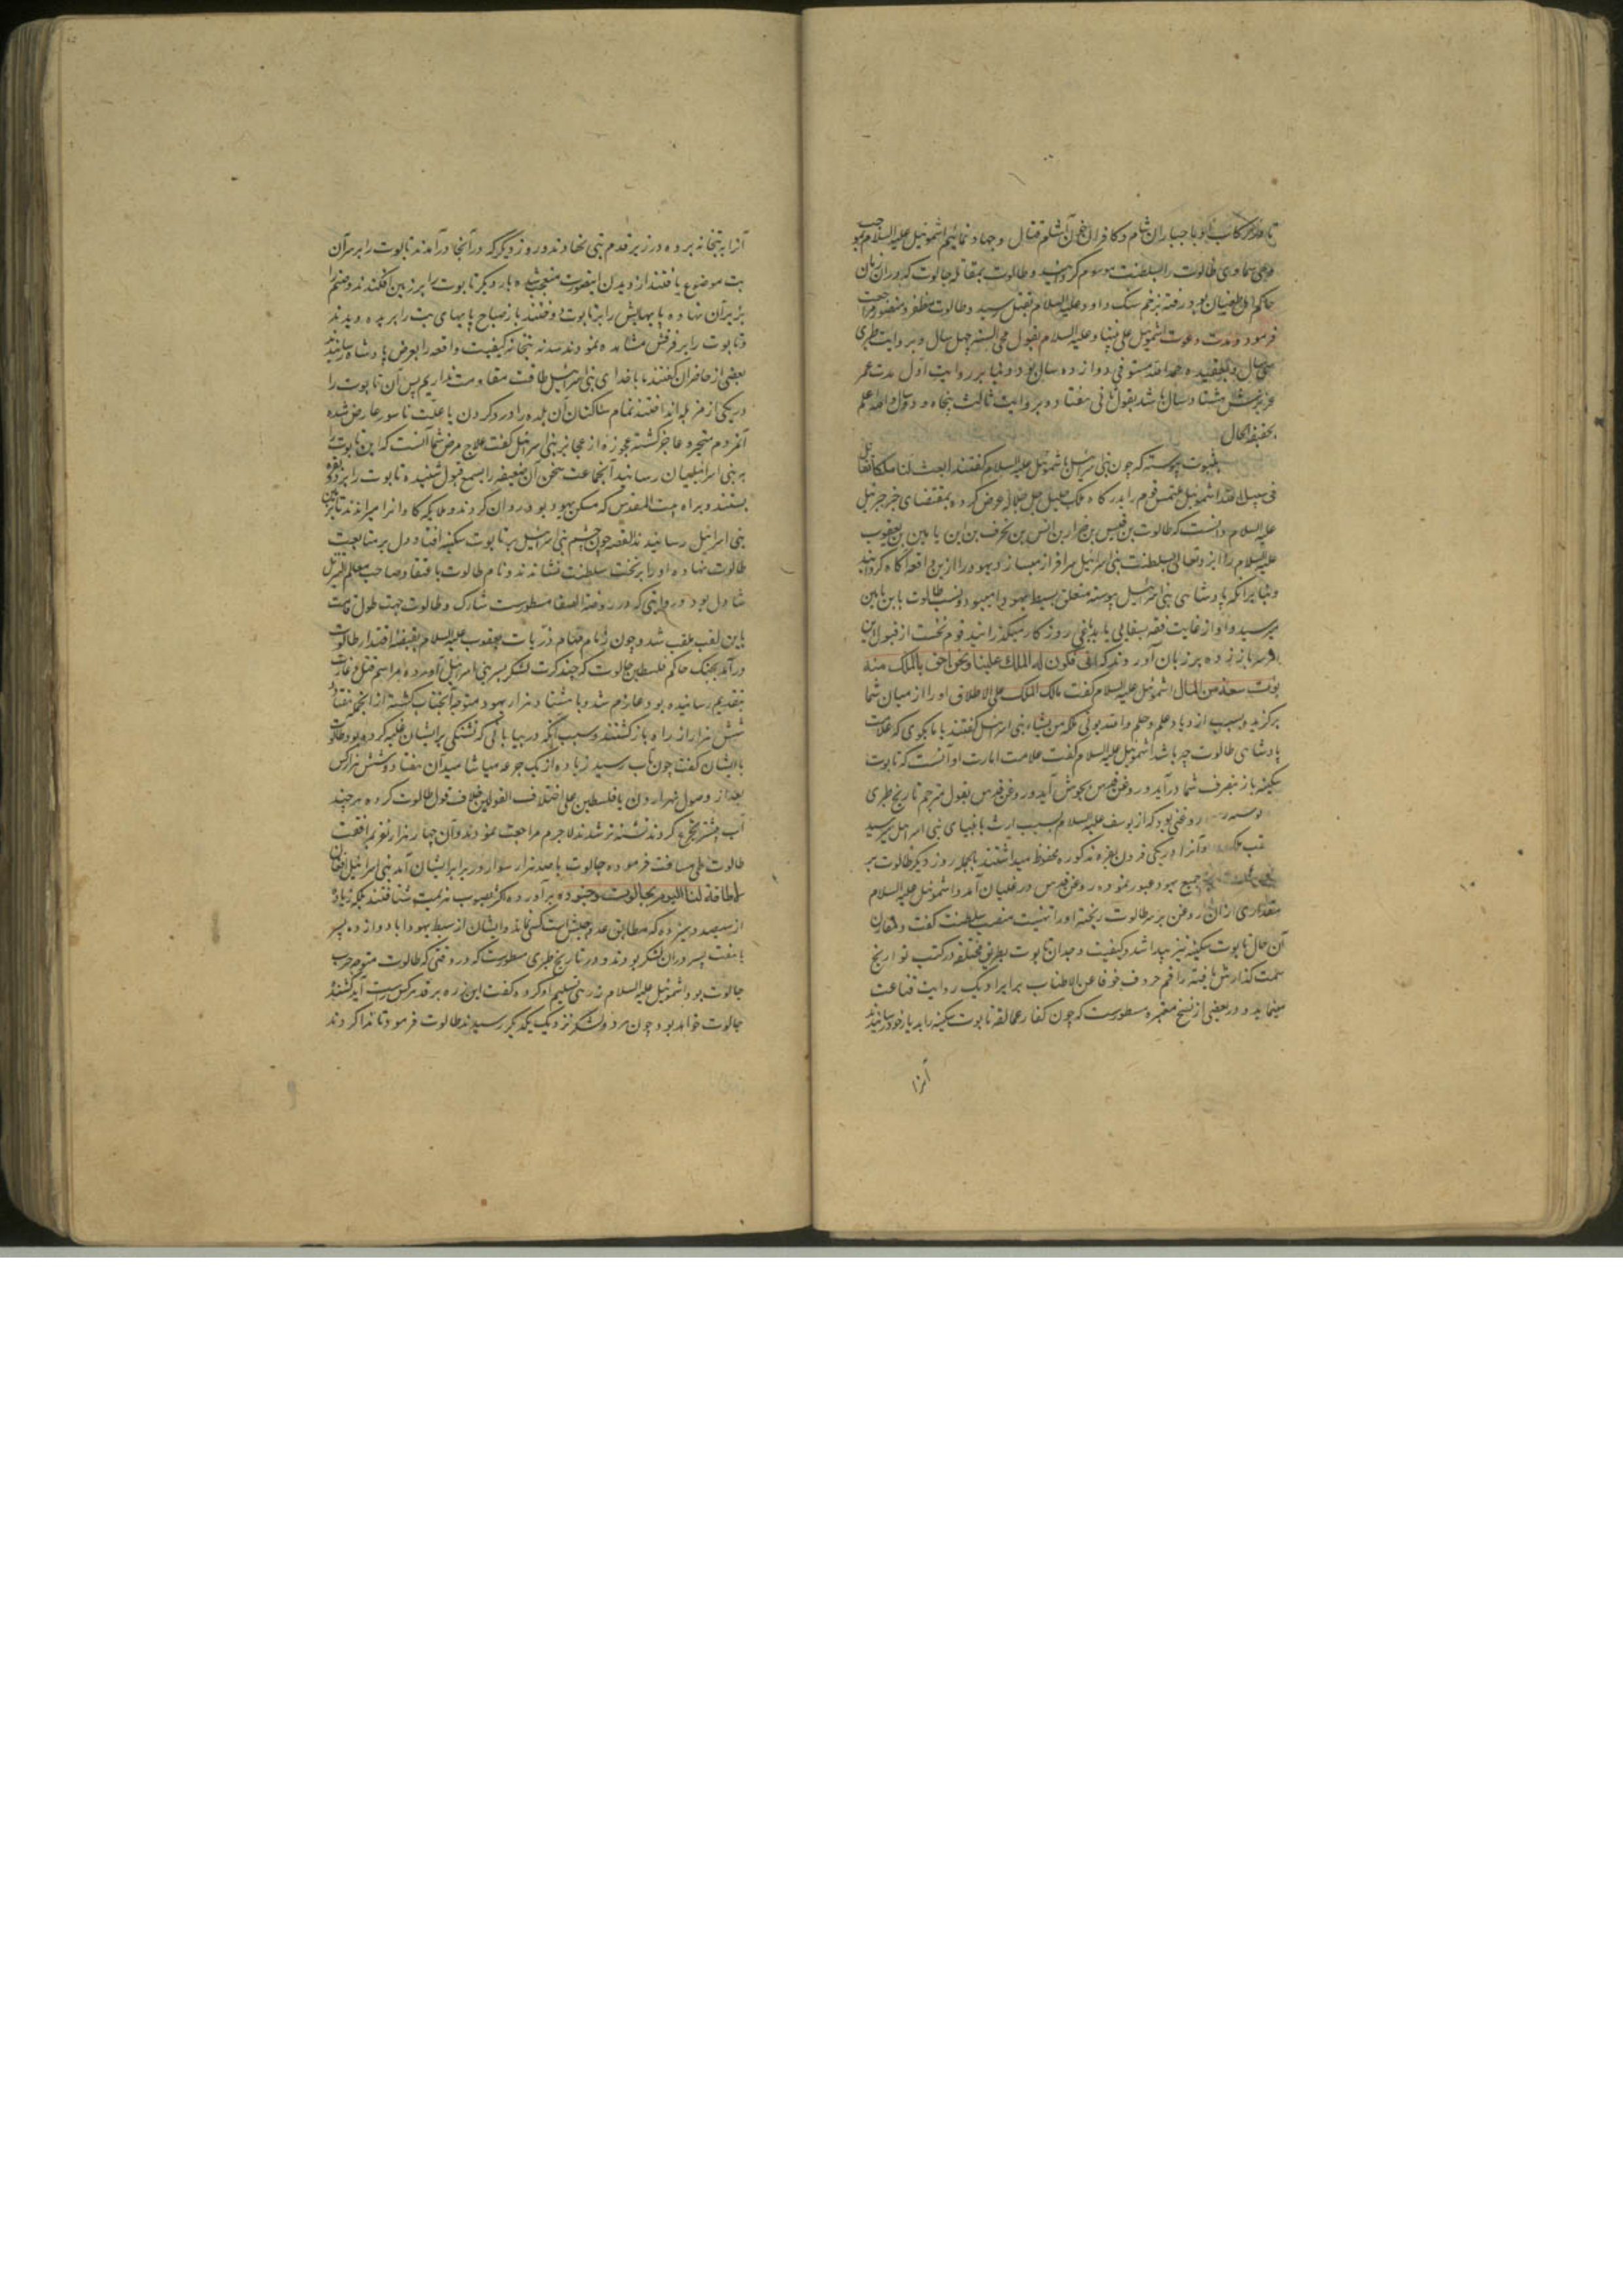 تا در رکاب او با جباران شام و کافران خون آشام قتال و جهاد نمائیم اشموئیل علیه السلام بموجب
وحی سماوی طالوت را بسلطنت موسوم گردانید و طالوت بمقابله جالوت که در ان زمان
حاکم اهل طغیان بود رفته بزخم سنک داود علیه السلام بقتل رسید و طالوت مظفر و منصور مراجعت
فرمود و مدت دعوت اشموئیل علی نبینا و علیه السلام بقول محی السنه چهل سال و بروایت طبری
سی سال و بعقیده حمدالله مستوفی دوازده سال بود و بنا بر روایت اول مدت عمر
عزیزش هشتاد سال باشد بقول ثانی هفتاد و بروایت ثالث پنجاه و دو سال والله اعلم
بحقیقة الحال
بثبوت پیوسته که چون بنی اسرائیل با شموئیل علیه السلام گفتند ابعث لنا ملکا نقاتل
فی سبیل الله اشموئیل ملتمس قوم را بدرگاه ملک جلیل جل جلاله عرض کرده بمقتضای خبر جبرئیل
علیه السلام دانست که طالوت بن قیس بن ضرار بن انس بن بحرف بن ابن یامین بن یعقوب
علیه السلام را ایزد تعالی بسلطنت بنی اسرائیل سرافراز میسازد یهود را ازین واقعه آگاه گردانید
و بنا برانکه پادشاهی بنی اسرائیل پیوسته متعلق بسبط یهودا میبود و نسب طالوت بابن یامین
میرسید و او از غایت فقر بسقایی یا بدباغی روزکار میکذرانید قوم نخست از قبول این
امر سر باز زده بر زبان آوردند که انی یکون له الملک علینا و نحن احق بالملک منه
یؤت سعة من المال اشموئیل علیه السلام گفت مالک الملک علی الاطلاق او را از میان شما
برگزید و بسبب ازدیاد علم و حلم والله یوتی ملکه من یشاء بنی اسرائیل گفتند با ما بگوی که علامت
پادشاهی طالوت چه باشد اشموئیل علیه السلام گفت علامت امارت او آنست که تابوت
سکینه باز بتصرف شما درآید و روغن قدس بجوش آید و روغن قدس بقول مترجم تاریخ طبری
روغنی بود که از یوسف علیه السلام بسبب ارث بانبیای بنی اسرائیل میرسید
و آنرا در یکی قرون بقره مذکوره محفوظ میداشتند بالجمله روز دیگر طالوت بر
جمیع یهود عبور نموده روغن قدس در غلیان آمد و اشموئیل علیه السلام
مقداری ازان روغن بر سر طالوت ریخته او را تهنیت منصب سلطنت گفت و مقارن
آن حال تابوت سکینه نیز پیدا شد و کیفیت وجدان تابوت بطریق مختلفه در کتب تواریخ
سمت گذارش یافته راقم حروف خوفا عن الاطناب بر ایراد یک روایت قناعت
مینماید و در بعضی از نسخ معتبره مسطورست که چون کفار عمالقه تابوت سکینه را بدیار خود رسانیدند
آنرا
آنرا به بتخانه برده در زیر قدم بتی نهادند و روز دیگر که در آنجا درآمدند تابوت را بر سر آن
بت موضوع یافتند از دیدن اینصورت متعجب شده بار دیگر تابوت را بر زمین افکندند و صنم را
بر زبر آن نهاده پایهایش را بر تابوت دوختند باز صباح پایهای بت را بریده دیدند
و تابوت را بر فرقش مشاهده نمودند سدنه بتخانه کیفیت واقعه را بعرض پادشاه رسانیدند
بعضی از حاضران گفتند ما با خدای بنی اسرائیل طاقت مقاومت نداریم پس آن تابوت را
در یکی از مزبله انداختند تمام ساکنان آن بلده را درد گردن یا علت ناسور عارض شده
آنمردم متحیر و عاجز گشته عجوزه از عجایز بنی اسرائیل گفت علاج مرض شما آنست که این تابوت را
به بنی اسرائیلیان رسانید آنجماعت سخن آن ضعیفه را بسمع قبول شنیده تابوت را بر دو بقره
بستند و براه بیت المقدس که مسکن یهود بود روان کردند و ملایکه گاوانرا میراندند تا بزمین
بنی اسرائیل رسانیدند القصه چون چشم بنی اسرائیل بر تابوت سکینه افتاد دل بر متابعت
طالوت نهاده او را بر تخت سلطنت نشاندند و نام طالوت باعتقاد صاحب معالم التنزیل
شاول بود و روایتی که در روضة الصفا مسطورست شارک و طالوت جهت طول قامت
باین لقب ملقب شد و چون زمام مهام ذریات یعقوب علیه السلام بقبضه اقتدار طالوت
درآمد بجنک حاکم فلسطین جالوت که چند کرت لشکر بسر بنی اسرائیل آورده مراسم قتل و غارت
بتقدیم رسانیده بود عازم شد و با هشتاد هزار یهود متوجه آنجناب گشته از انجمله هفتاد و
شش هزار از راه بازگشتند و سبب آنکه در بیابانی که تشنگی بر ایشان غلبه کرده بود طالوت
بایشان گفت چون بآب رسید زیاده از یک جرعه میاشامید آن هفتاد و شش هزار کس
بعد از وصول بنهر اردن یا فلسطین علی اختلاف القولین خلاف قول طالوت کرده هر چند
آب بیشتر بجرع کردند تشنه تر شدند لاجرم مراجعت نمودند و آن چهار هزار نفر بمرافقت
طالوت طی مسافت فرموده جالوت با صد هزار سوار در برابر ایشان آمد بنی اسرائیل افغان
لاطاقة لنا الیوم بجالوت و جنوده برآورده اکثر بصوب هزیمت شتافتند بلکه زیاده
از سیصد و سیزده که مطابق عدد جیش است کسی نماند و ایشان از سبط یهودا با دوازده پسر
یا هفت پسر دران لشکر بودند و در تاریخ طبری مسطورست که در وقتی که طالوت متوجه حرب
جالوت بود اشموئیل علیه السلام زرهی تسلیم او کرد و گفت این زره بر قد هر کس راست آید کشنده
جالوت خواهد بود و چون هر دو لشکر نزدیک یکدیگر رسیدند طالوت فرمود تا ندا کردند